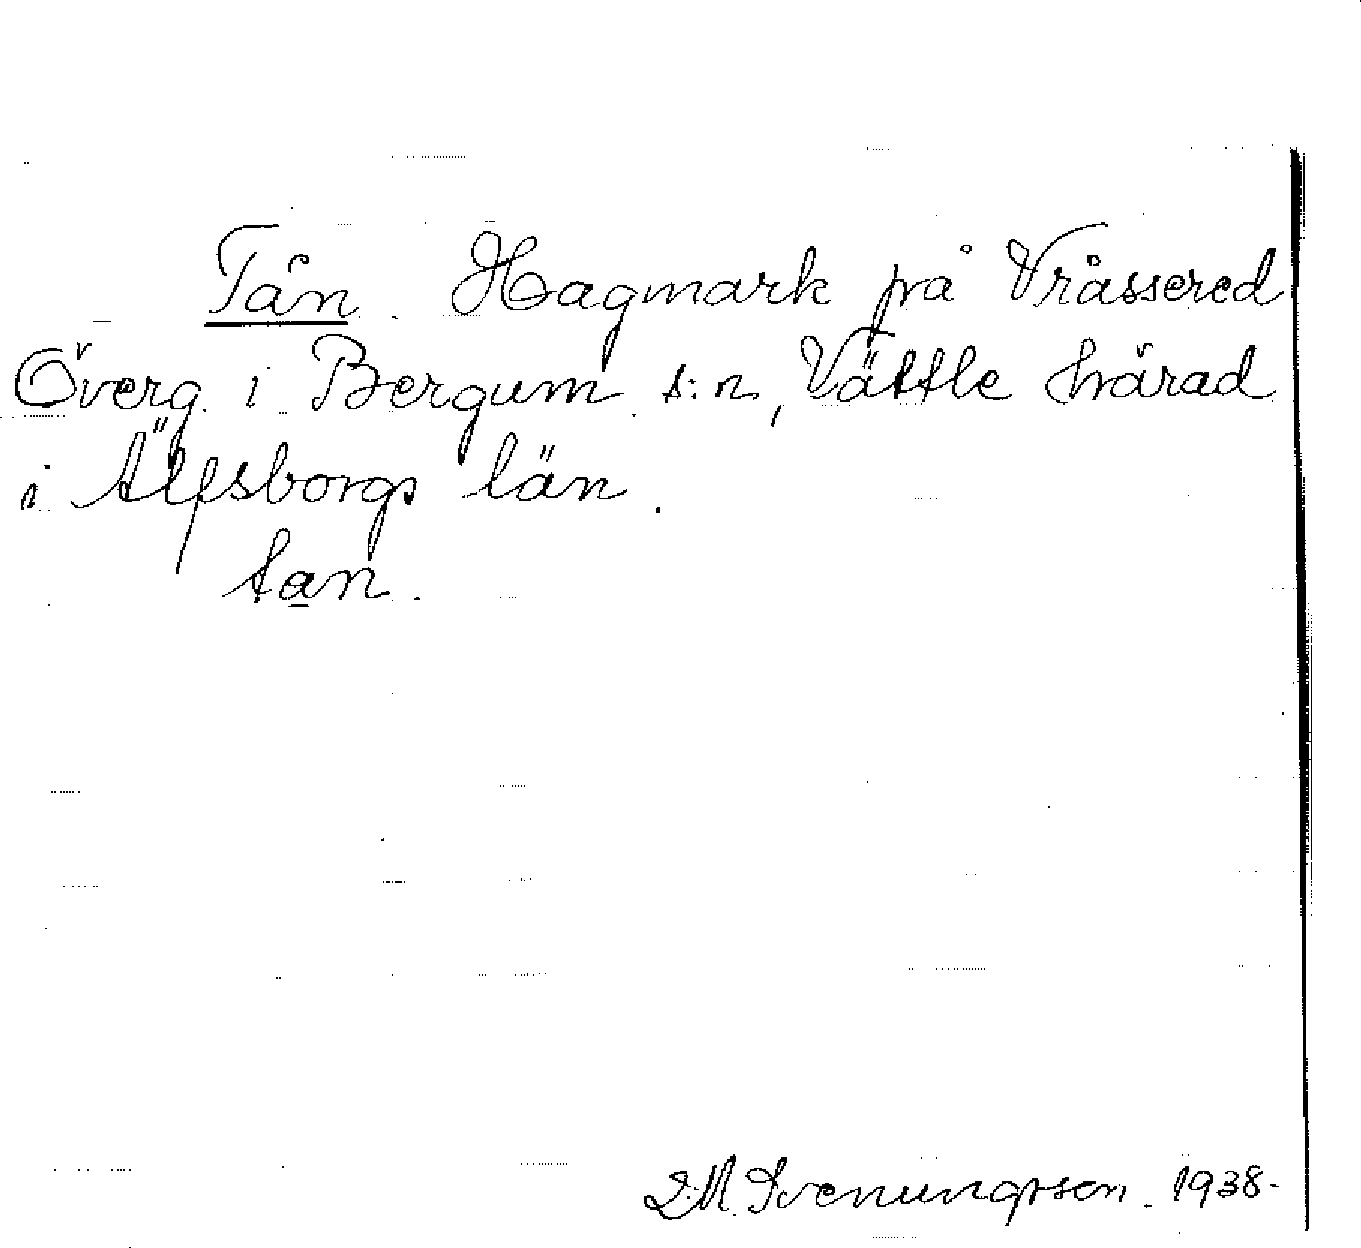 Tån. Hagmark på Vråssered
Överg. i Bergum s:n, Vättle härad
i Älfsborgs län.
tan.
J.M. Svenungsson. 1938.